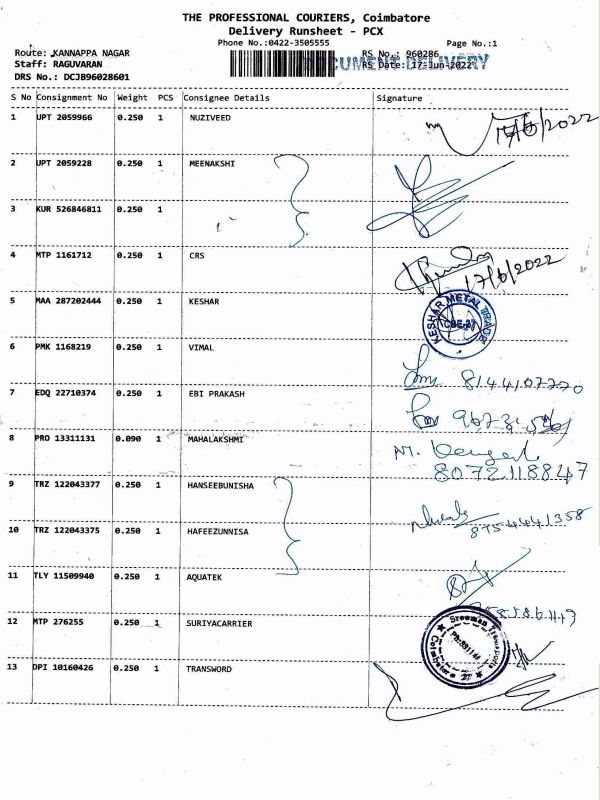 THE PROFESSIONAL COURIERS, Coimbatore
Delivery Runsheet - PCX
Phone No.:0422-3505555 Page No.:1
Route: KANNAPPA NAGAR RS No.: 960286
Staff: RAGUVARAN RS Date: 17-Jun-2022
DOCUMENT DELIVERY
DRS No.: DCJB96028601
S No Consignment No Weight PCS Consignee Details Signature
1 UPT 2059966 0.250 1 NUZIVEED 17/6/2022
2 UPT 2059228 0.250 1 MEENAKSHI
3 KUR 526846811 0.250 1
4 MTP 1161712 0.250 1 CRS 17/6/2022
5 MAA 287202444 0.250 1 KESHAR KESHAR METAL TRADE CBE-37
6 PMK 1168219 0.250 1 VIMAL 8144107770
7 EDQ 22710374 0.250 1 EBI PRAKASH
8 PRO 13311131 0.090 1 MAHALAKSHMI 8072118847
9 TRZ 122043377 0.250 1 HANSEEBUNISHA
10 TRZ 122043375 0.250 1 HAFEEZUNNISA 8754441358
11 TLY 11509940 0.250 1 AQUATEK
12 MTP 276255 0.250 1 SURIYACARRIER Coimbatore
13 DPI 10160426 0.250 1 TRANSWORD